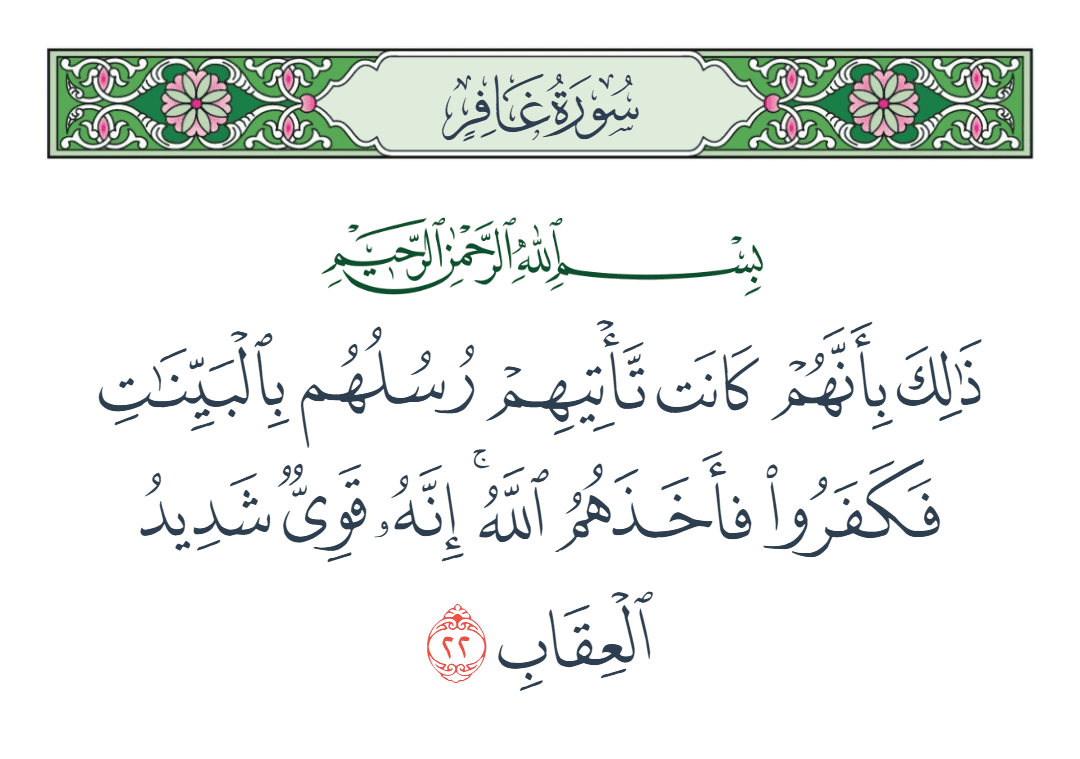 سُورَةُ غَافِرٍ
بِسْمِ ٱللَّهِ ٱلرَّحْمَٰنِ ٱلرَّحِيمِ
ذَٰلِكَ بِأَنَّهُمْ كَانَت تَّأْتِيهِمْ رُسُلُهُم بِٱلْبَيِّنَـٰتِ
فَكَفَرُوا۟ فأَخَذَهُمُ ٱللَّهُ ۚ إِنَّهُۥ قَوِىٌّ شَدِيدُ
ٱلْعِقَابِ ٢٢